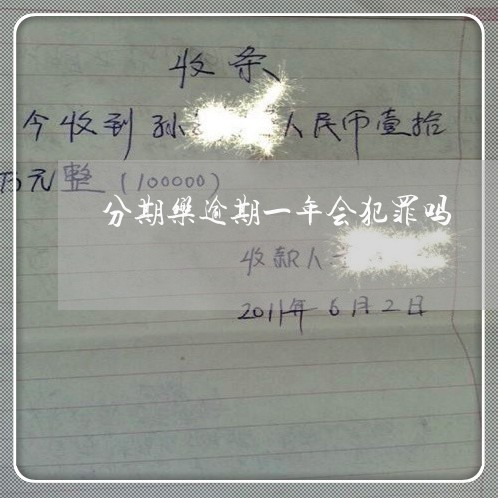 收条
今收到孙 人民币壹拾
万元整(100000)
分期樂逾期一年会犯罪吗
收款人
2011年6月2日